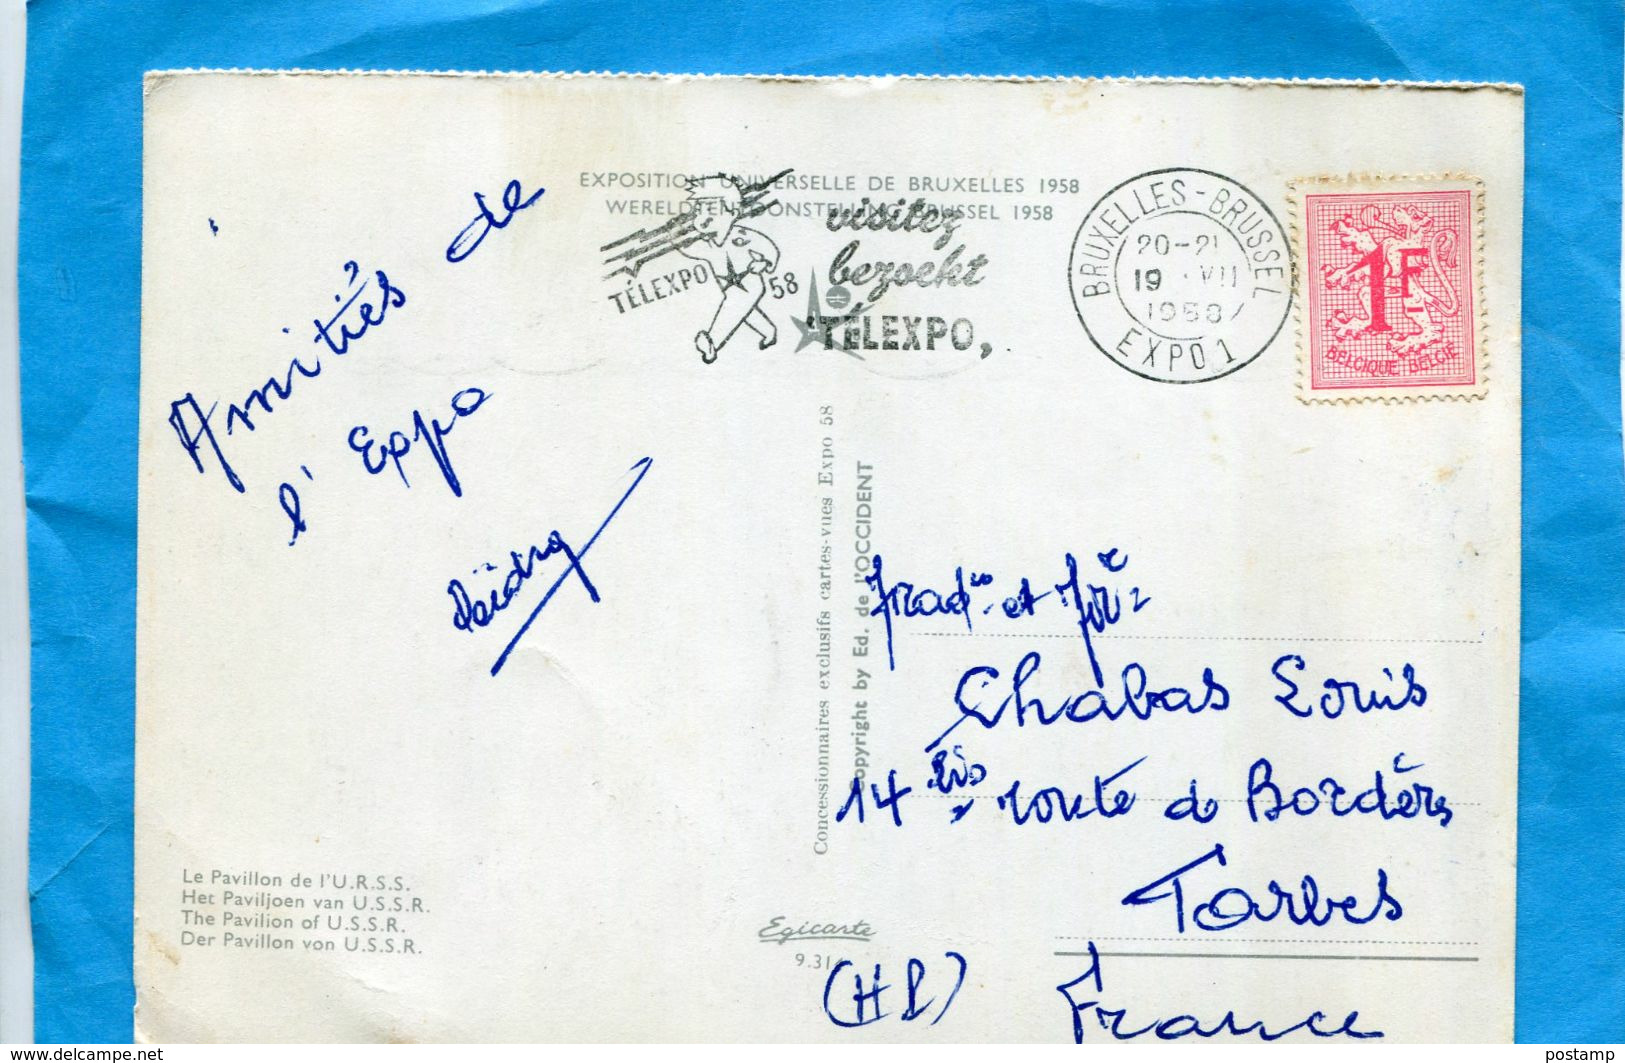 EXPOSITION UNIVERSELLE DE BRUXELLES 1958
WERELDTENTOONSTELLING BRUSSEL 1958
TÉLEXPO 58
visitez
bezoekt
TÉLEXPO,
BRUXELLES-BRUSSEL
20-21
19 VII
1958
EXPO 1
1F
BELGIQUE BELGIE
Amitiés de
l'Expo
Concessionnaires exclusifs cartes-vues Expo 58
Copyright by Ed. de l'OCCIDENT
et
Chabas Louis
14 bis route de Bordères
Tarbes
(HP)
France
Le Pavillon de l'U.R.S.S.
Het Paviljoen van U.S.S.R.
The Pavilion of U.S.S.R.
Der Pavillon von U.S.S.R.
Egicarte
postamp